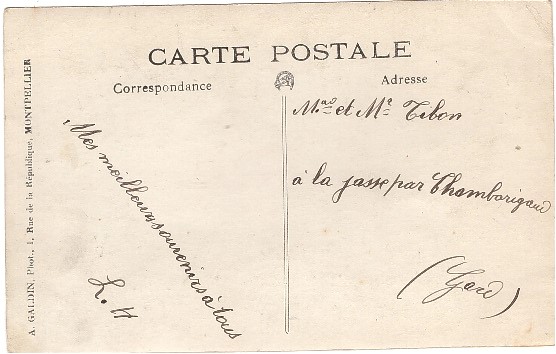 CARTE POSTALE
Correspondance
Adresse
A. GALDIN, Phot., 1, Rue de la République, MONTPELLIER
Mes meilleurs souvenirs à tous
L. H
et Mr Tibon
à la jasse par Chambarigaud
(Gard)